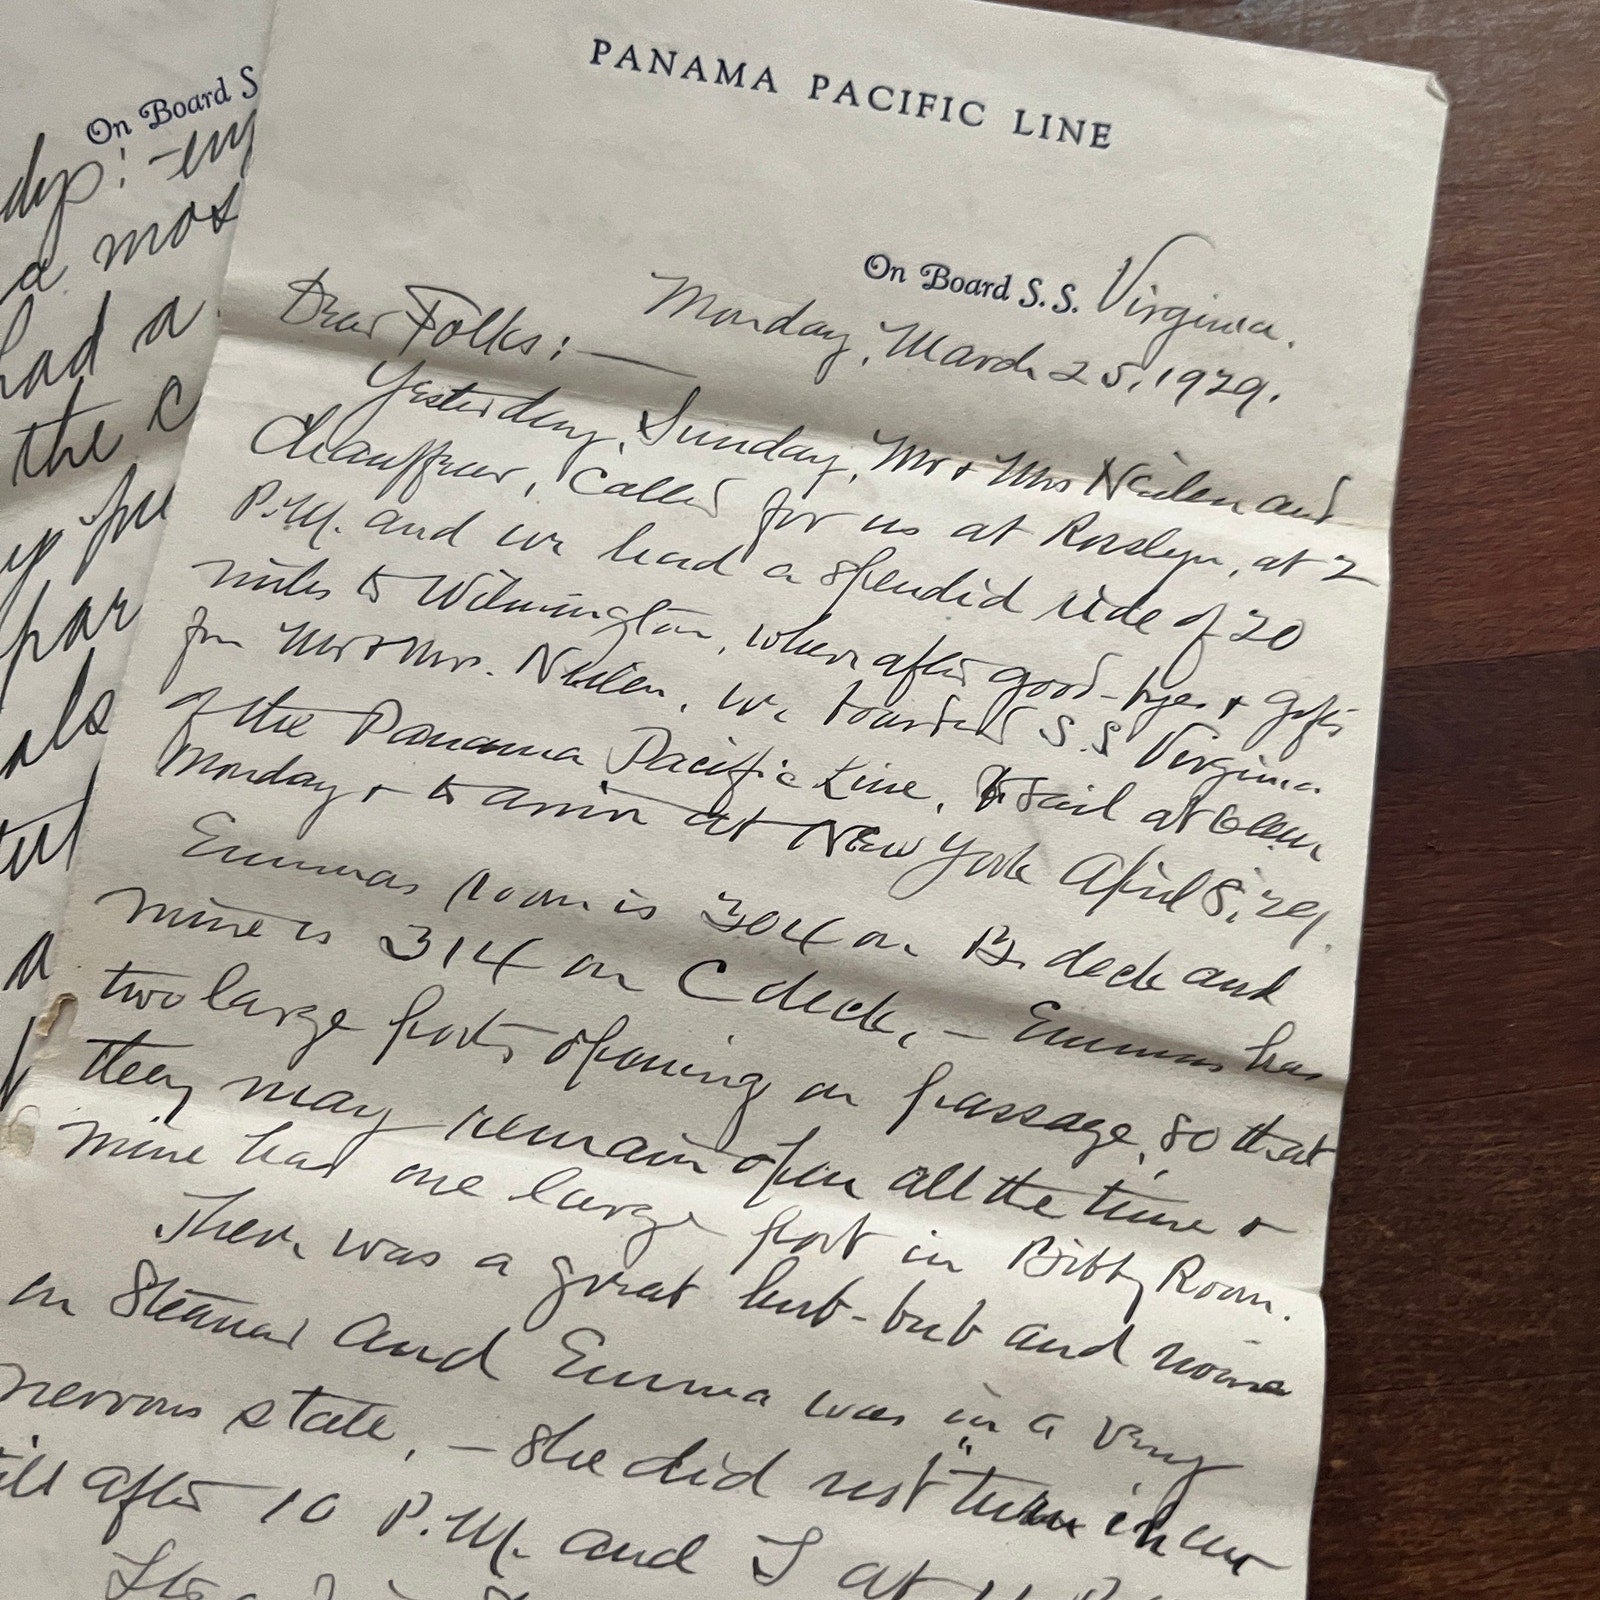 PANAMA PACIFIC LINE
On Board S.S. Virginia.
Monday, March 25, 1929.
Dear Folks: —
Yesterday, Sunday, Mr + Mrs Neilen and
Chauffeur, called for us at Rosslyn, at 2
P.M. and we had a splendid ride of 20
miles to Wilmington, where after good-byes + gifts
from Mr + Mrs. Neilen, we boarded S.S Virginia
of the Panama Pacific Line, to sail at 6 am
Monday + to arrive at New York April 8, '29.
Emmas room is 304 on B. deck and
mine is 314 on C deck, — Emmas has
two large ports opening on passage, so that
they may remain open all the time +
mine has one large port in Bibby Room.
There was a great hub-bub and noise
on Steamer and Emma was in a very
nervous state, — she did not "turn in"
till after 10 P.M. and I at 11
On Board S
a mos
had a
the c
par
als
a